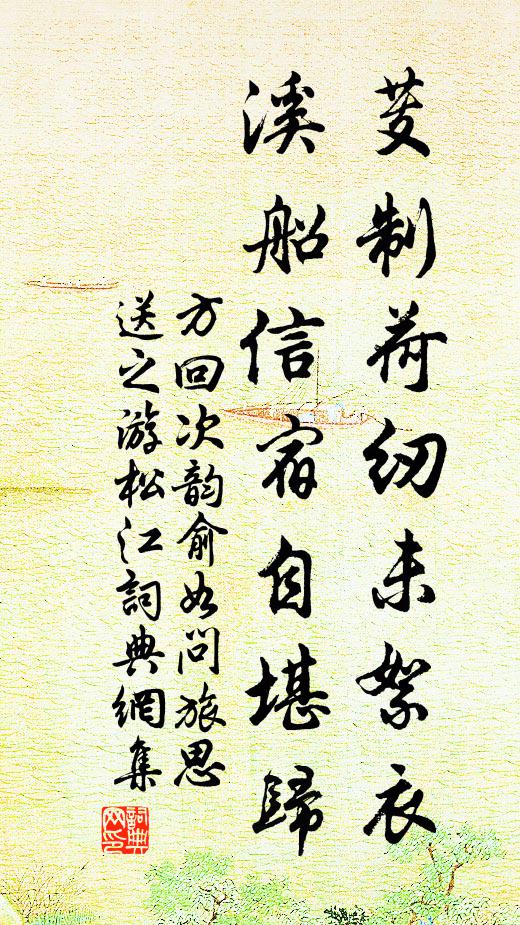 芰制荷纫未絮衣
溪船信宿自堪歸
方回次韵俞如问旅思
送之游松江詞典網集
詞典网印